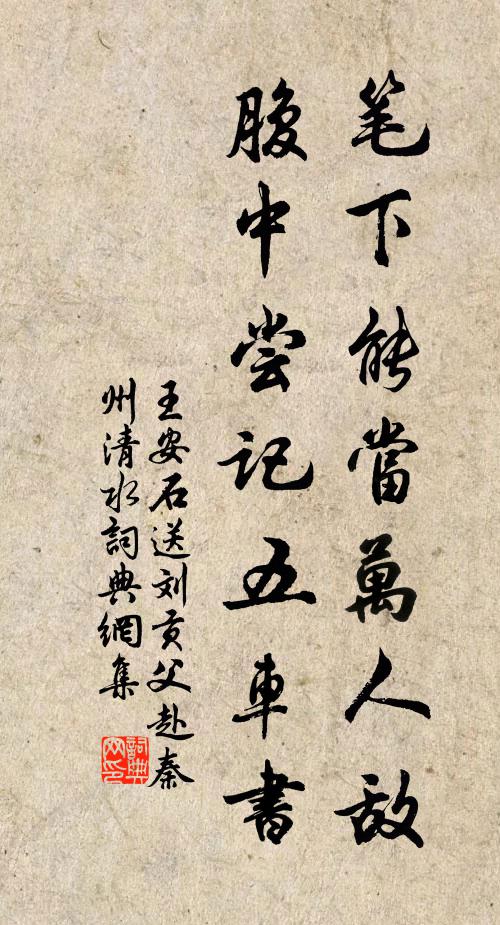 笔下能當萬人敌
腹中尝记五車書
王安石送刘贡父赴秦
州清水詞典網集
詞典网印